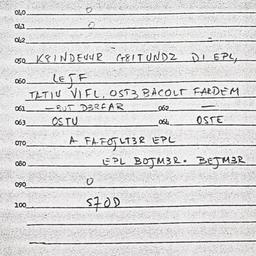 010 0
011 0
042
050 KRINDEUUR GRITUNDZ DI EPL,
060 LEJF
TATIU VIFL, OST3 BACOLT FARDEM
061 —BUT D3RFAR 062 —
063 OSTU 064 OSTE
070 A FAFOJLT3R EPL
080 EPL BOJM3R. BEJM3R
090 0
100 S70D